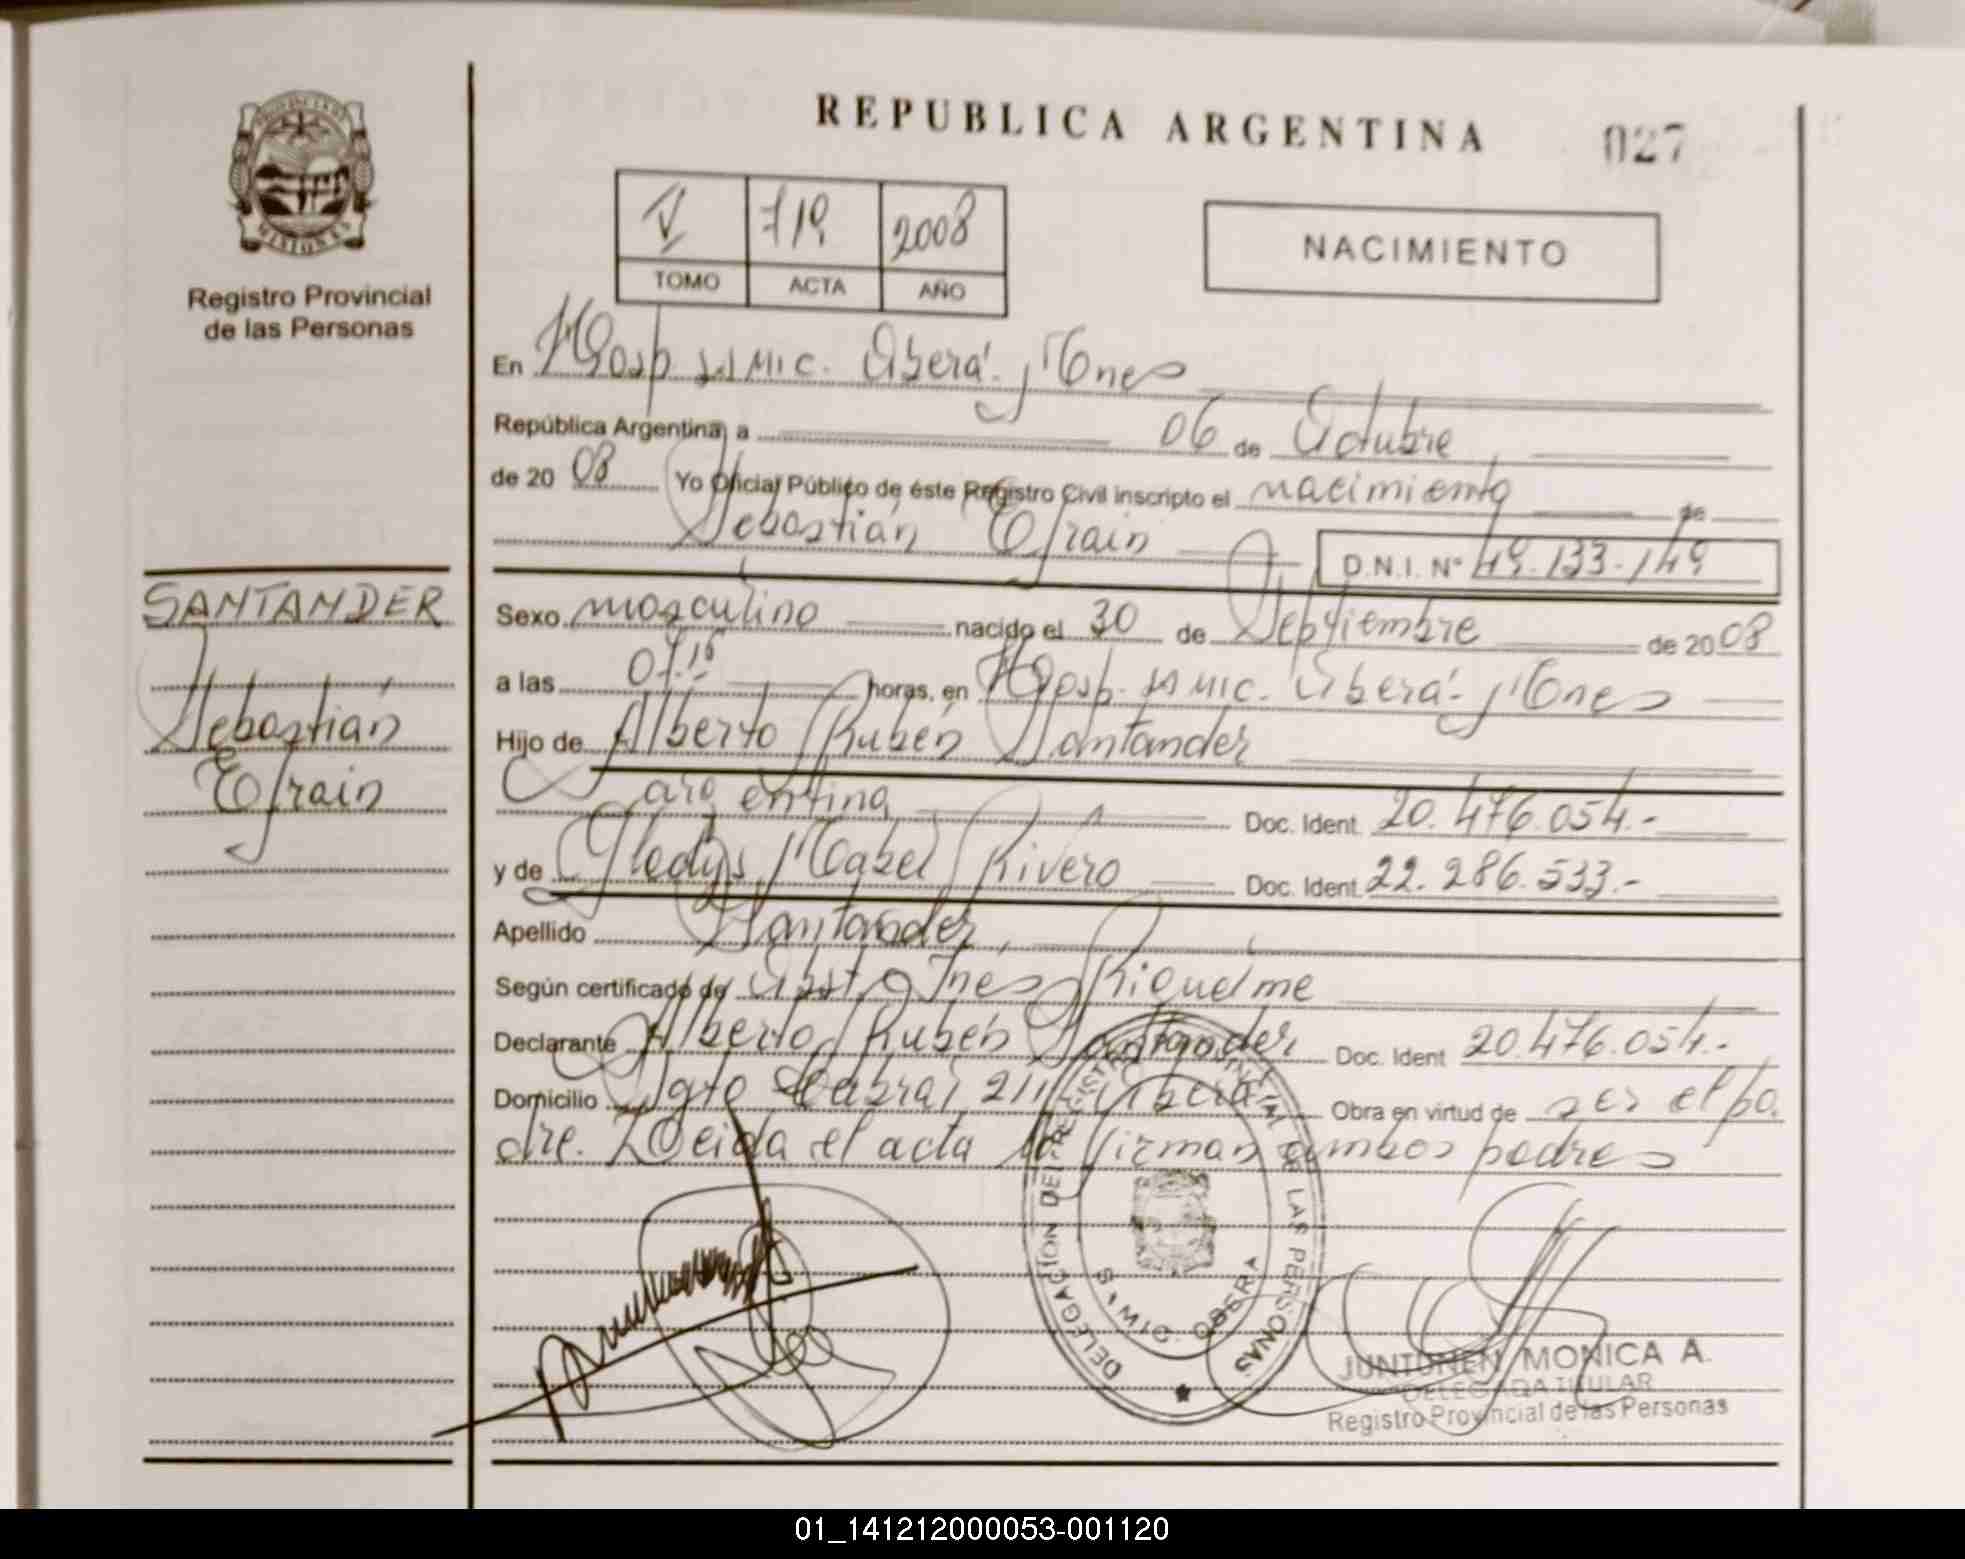 REPUBLICA ARGENTINA
027
PROVINCIA DE MISIONES
Registro Provincial
de las Personas
V 719 2008
TOMO ACTA AÑO
NACIMIENTO
En Hosp. SAMIC. Oberá. Mnes
República Argentina, a 06 de Octubre
de 2008 Yo Oficial Público de éste Registro Civil inscripto el nacimiento de
Sebastián Efrain D.N.I. Nº 49.133.149
SANTANDER
Sebastián
Efrain
Sexo masculino nacido el 30 de Septiembre de 2008
a las 07.15 horas, en Hosp. SAMIC. Oberá. Mnes
Hijo de Alberto Rubén Santander
argentina Doc. Ident. 20.476.054.-
y de Gladys Mabel Rivero Doc. Ident. 22.286.533.-
Apellido Santander
Según certificado de Obst. Ines Riquelme
Declarante Alberto Rubén Santander Doc. Ident 20.476.054.-
Domicilio Sgto Cabral 211 Oberá Obra en virtud de ser el pa
dre. Leida el acta la firman ambos padres
DELEGACIÓN DEL REGISTRO PROVINCIAL DE LAS PERSONAS
SAMIC. OBERA
JUNTUNEN MONICA A.
DELEGADA TITULAR
Registro Provincial de las Personas
01_141212000053-001120